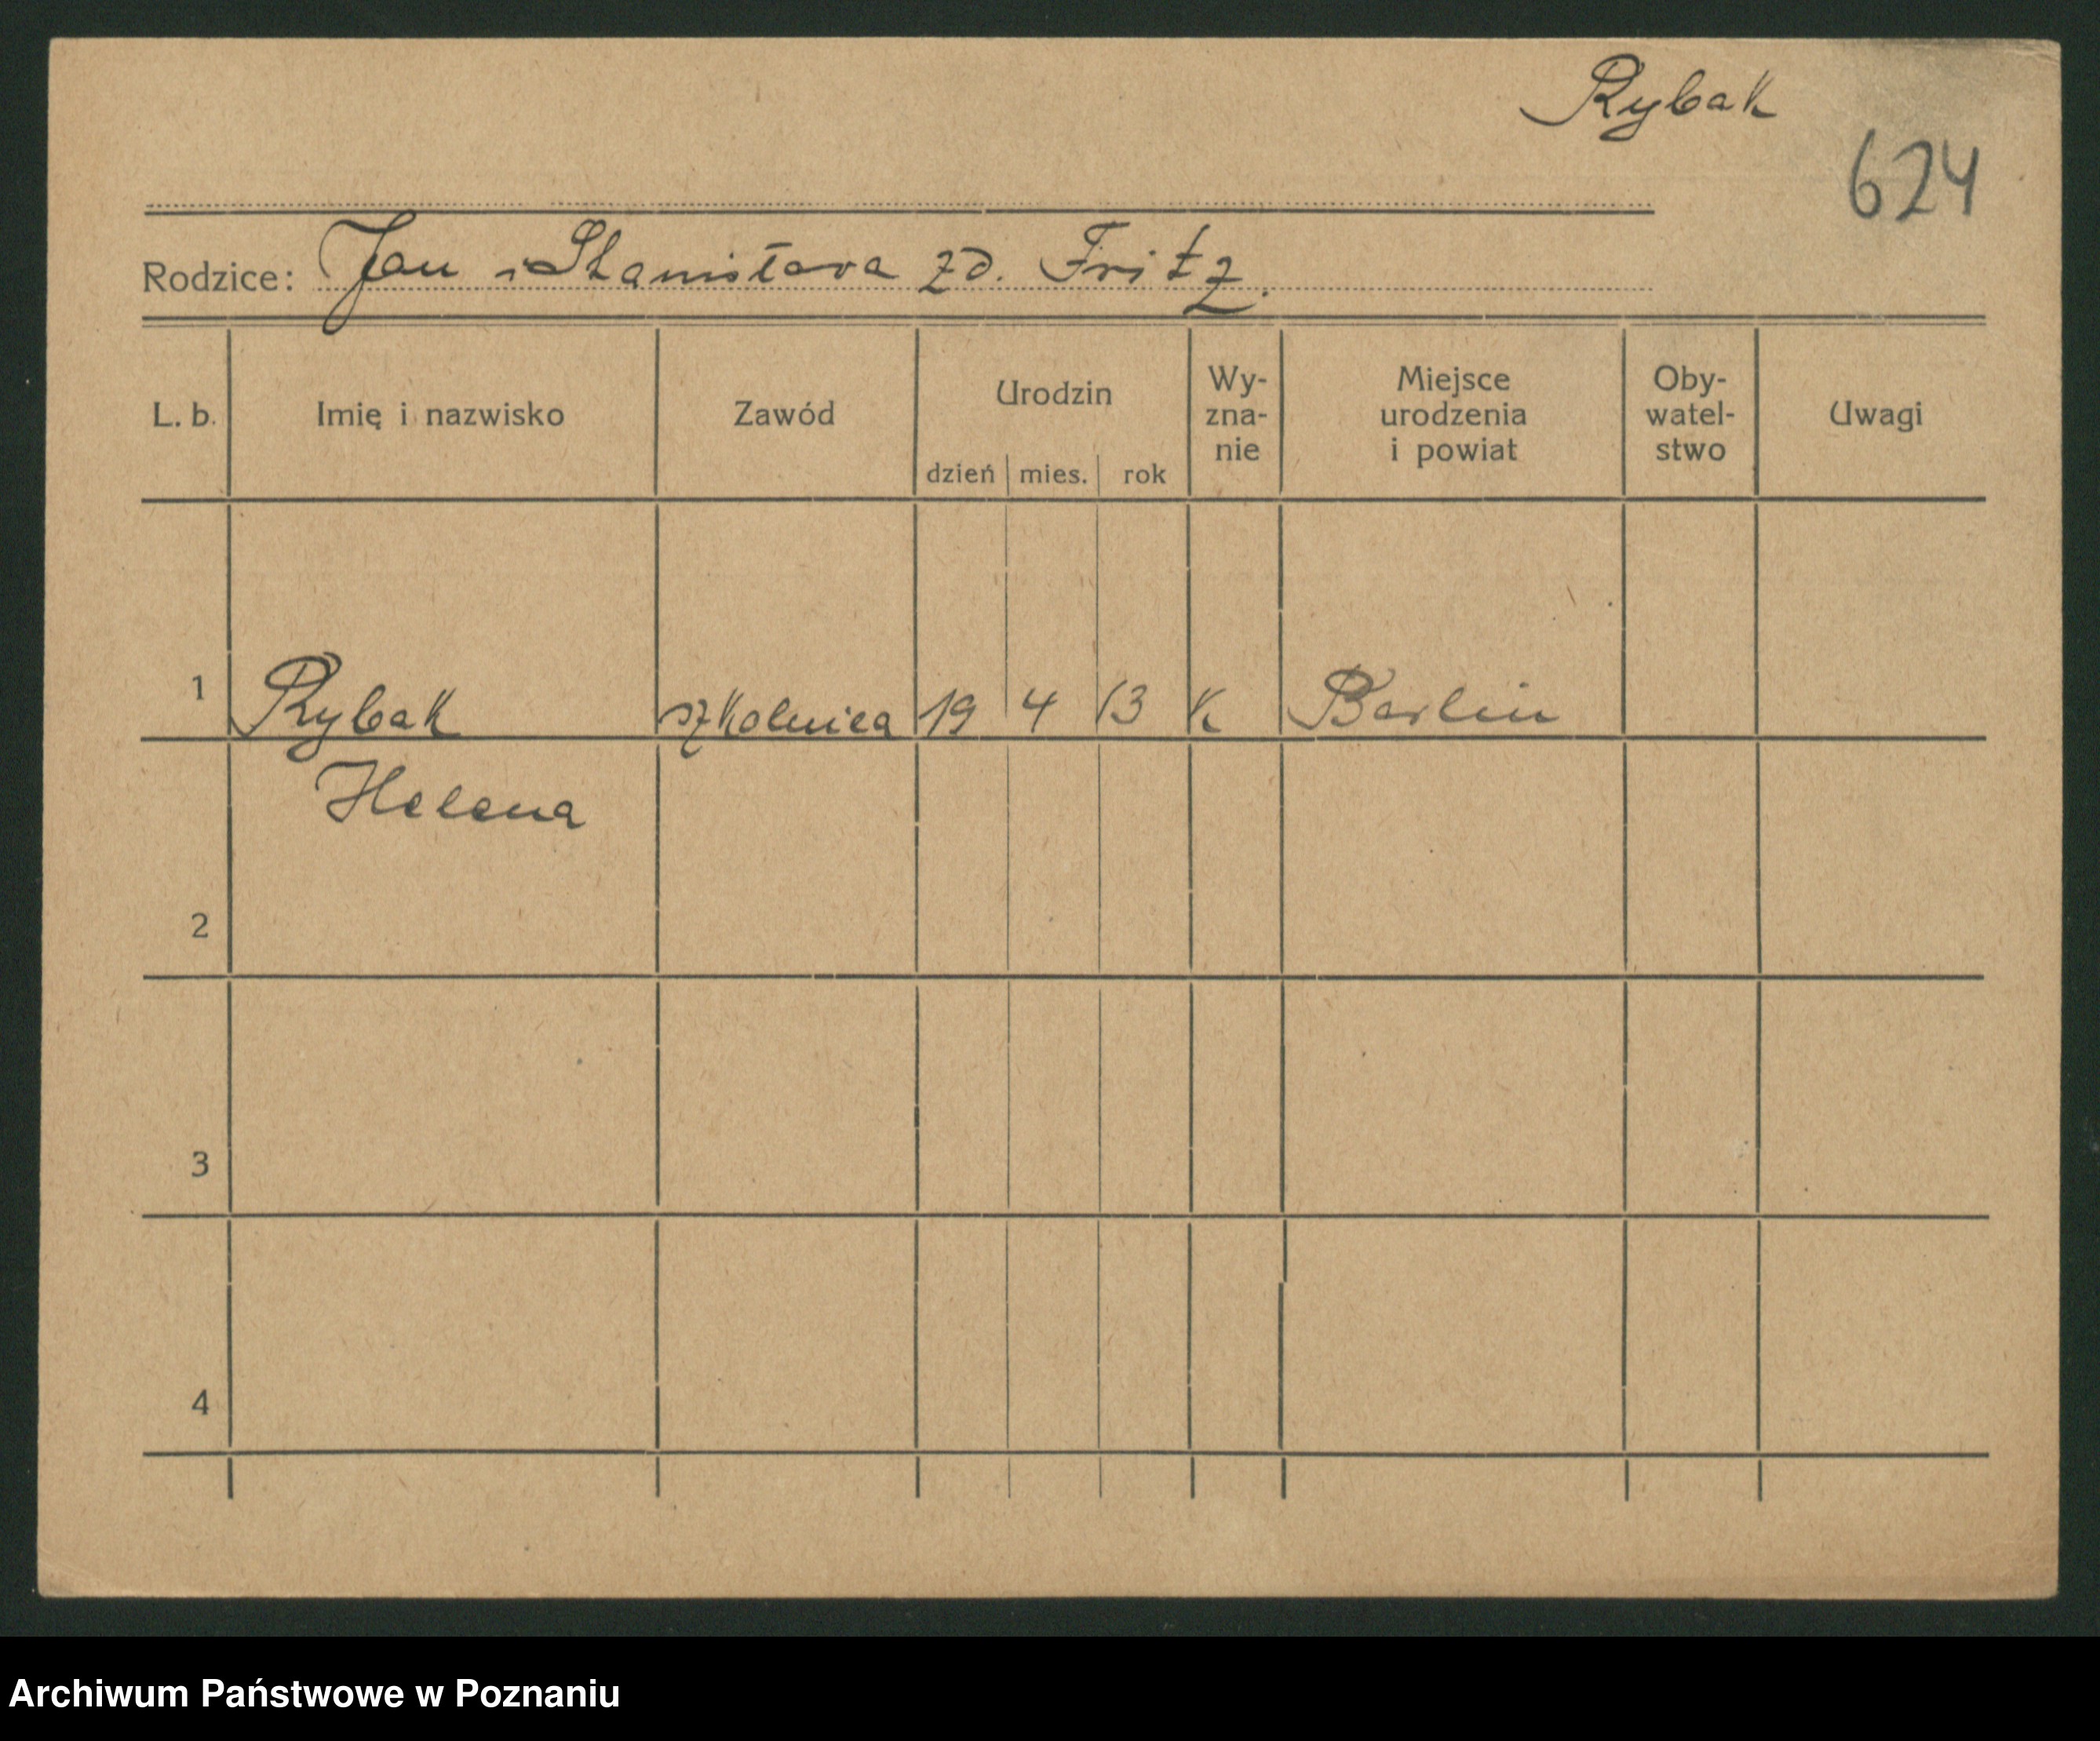 Rybak
624
Rodzice: Jan i Stanisława zd. Fritz.
L. b. Imię i nazwisko Zawód Urodzin dzień mies. rok Wy-zna-nie Miejsce urodzenia i powiat Oby-watel-stwo Uwagi
1 Rybak szkolnica 19 4 13 K Berlin
Helena
2
3
4
Archiwum Państwowe w Poznaniu